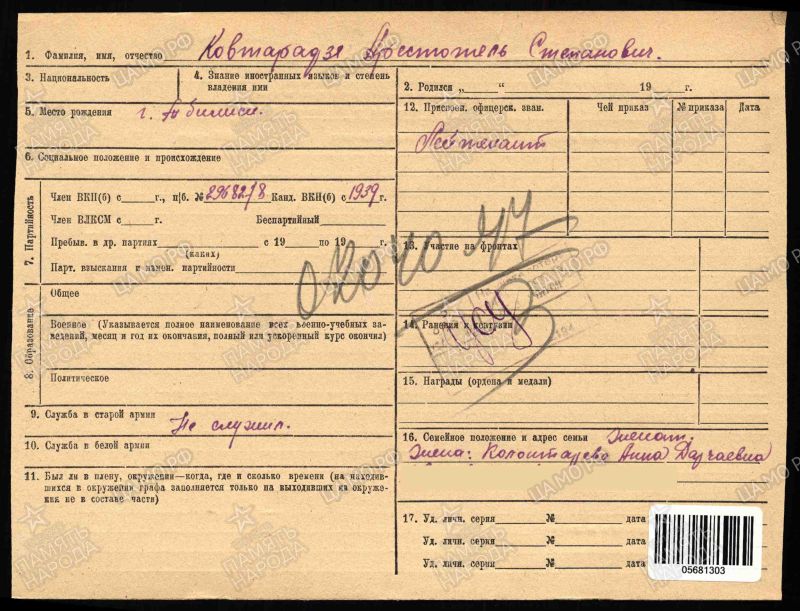 1. Фамилия, имя, отчество Ковтарадзе Аристотель Степанович.
3. Национальность
4. Знание иностранных языков и степень владения ими
5. Место рождения г. Тбилиси.
6. Социальное положение и происхождение
7. Партийность
Член ВКП(б) с г., п|б. № Канд. ВКП(б) с 1939 г.
Член ВЛКСМ с г. Беспартийный
Пребыв. в др. партиях с 19 по 19 г.
(каких)
Парт. взыскания и измен. партийности
8. Образование
Общее
Военное (Указывается полное наименование всех военно-учебных за-
ведений, месяц и год их окончания, полный или ускоренный курс окончил)
Политическое
9. Служба в старой армии Не служил.
10. Служба в белой армии
11. Был ли в плену, окружении—когда, где и сколько времени (на находив-
шихся в окружении графа заполняется только на выходивших из окруже-
ния не в составе части)
2. Родился „ “ 19 г.
12. Присвоен. офицерск. зван. Чей приказ № приказа Дата
Лейтенант
13. Участие на фронтах
14. Ранения и контузии
15. Награды (ордена и медали)
16. Семейное положение и адрес семьи женат.
Жена: Анна
17. Уд. личн. серия № дата
Уд. личн. серия № дата
Уд. личн. серия № дата
05681303
ЦАМО РФ
ПАМЯТЬ НАРОДА